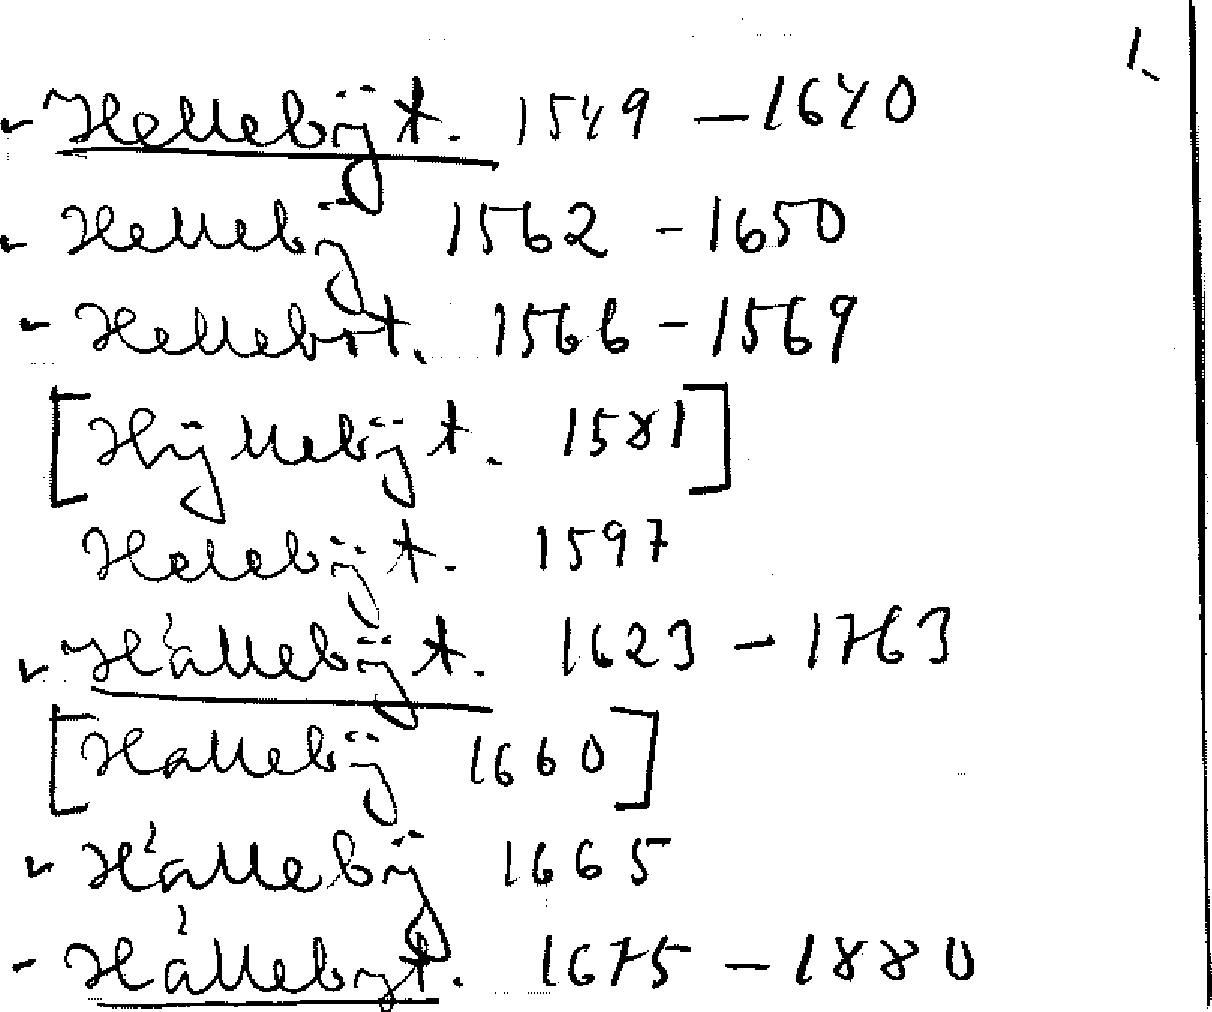 1.
- Hellebÿt. 1549 – 1640
- Hellebÿ 1562 – 1650
- Hellebot. 1566 – 1569
[Hÿllebÿt. 1581]
Helebÿt. 1597
- Hållebÿt. 1623 – 1763
[Hallebÿ 1660]
- Hållebÿ 1665
- Hållebyt. 1675 – 1880